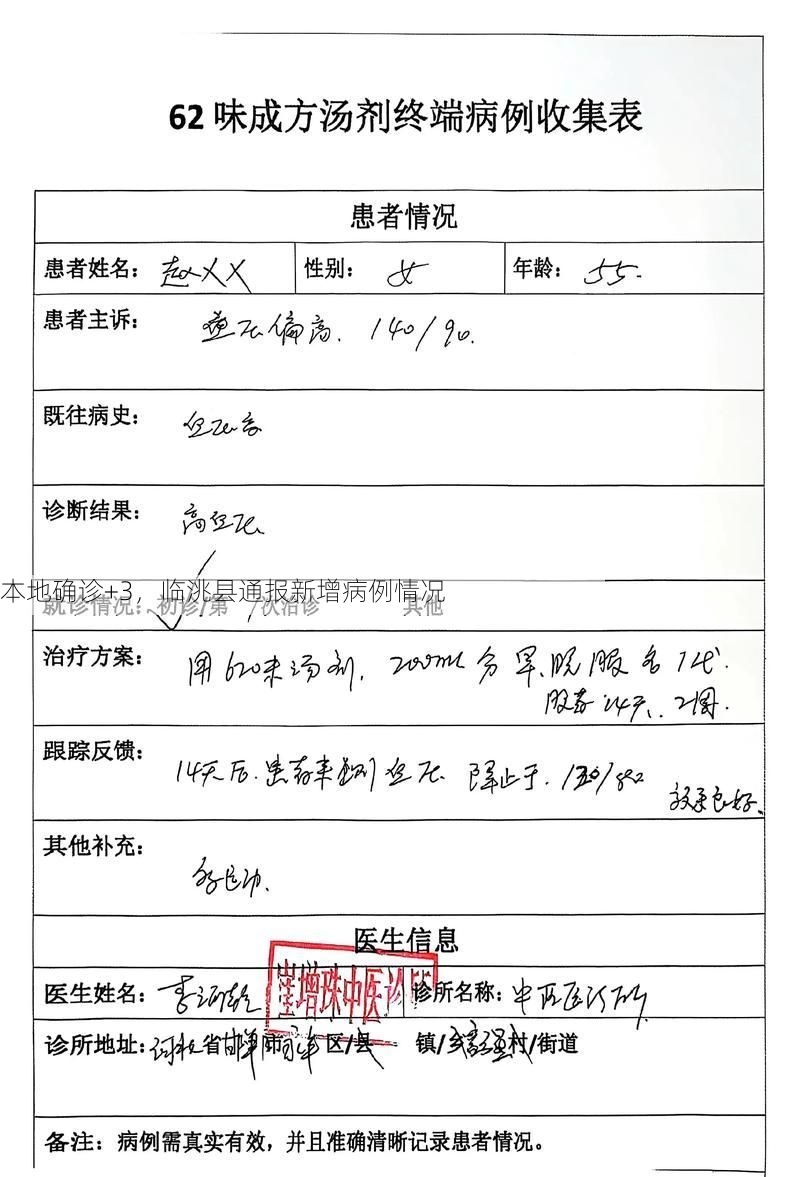 62味成方汤剂终端病例收集表
患者情况
患者姓名：赵XX 性别：女 年龄：55.
患者主诉：血压偏高. 140/90.
既往病史：血压高
诊断结果：高血压
本地确诊+3，临洮县通报新增病例情况
就诊情况：初诊/第 /次治诊 其他
治疗方案：用620味汤剂，200ml分早、晚服各1代.
服药14天、2周.
跟踪反馈：14天后.患者来测血压 降止于.
效果良好.
其他补充：
医生信息
崔增珠中医诊所
医生姓名：李 诊所名称：中医诊所
诊所地址：河北省邯郸市 区/县 镇/乡 村/街道
备注：病例需真实有效，并且准确清晰记录患者情况。